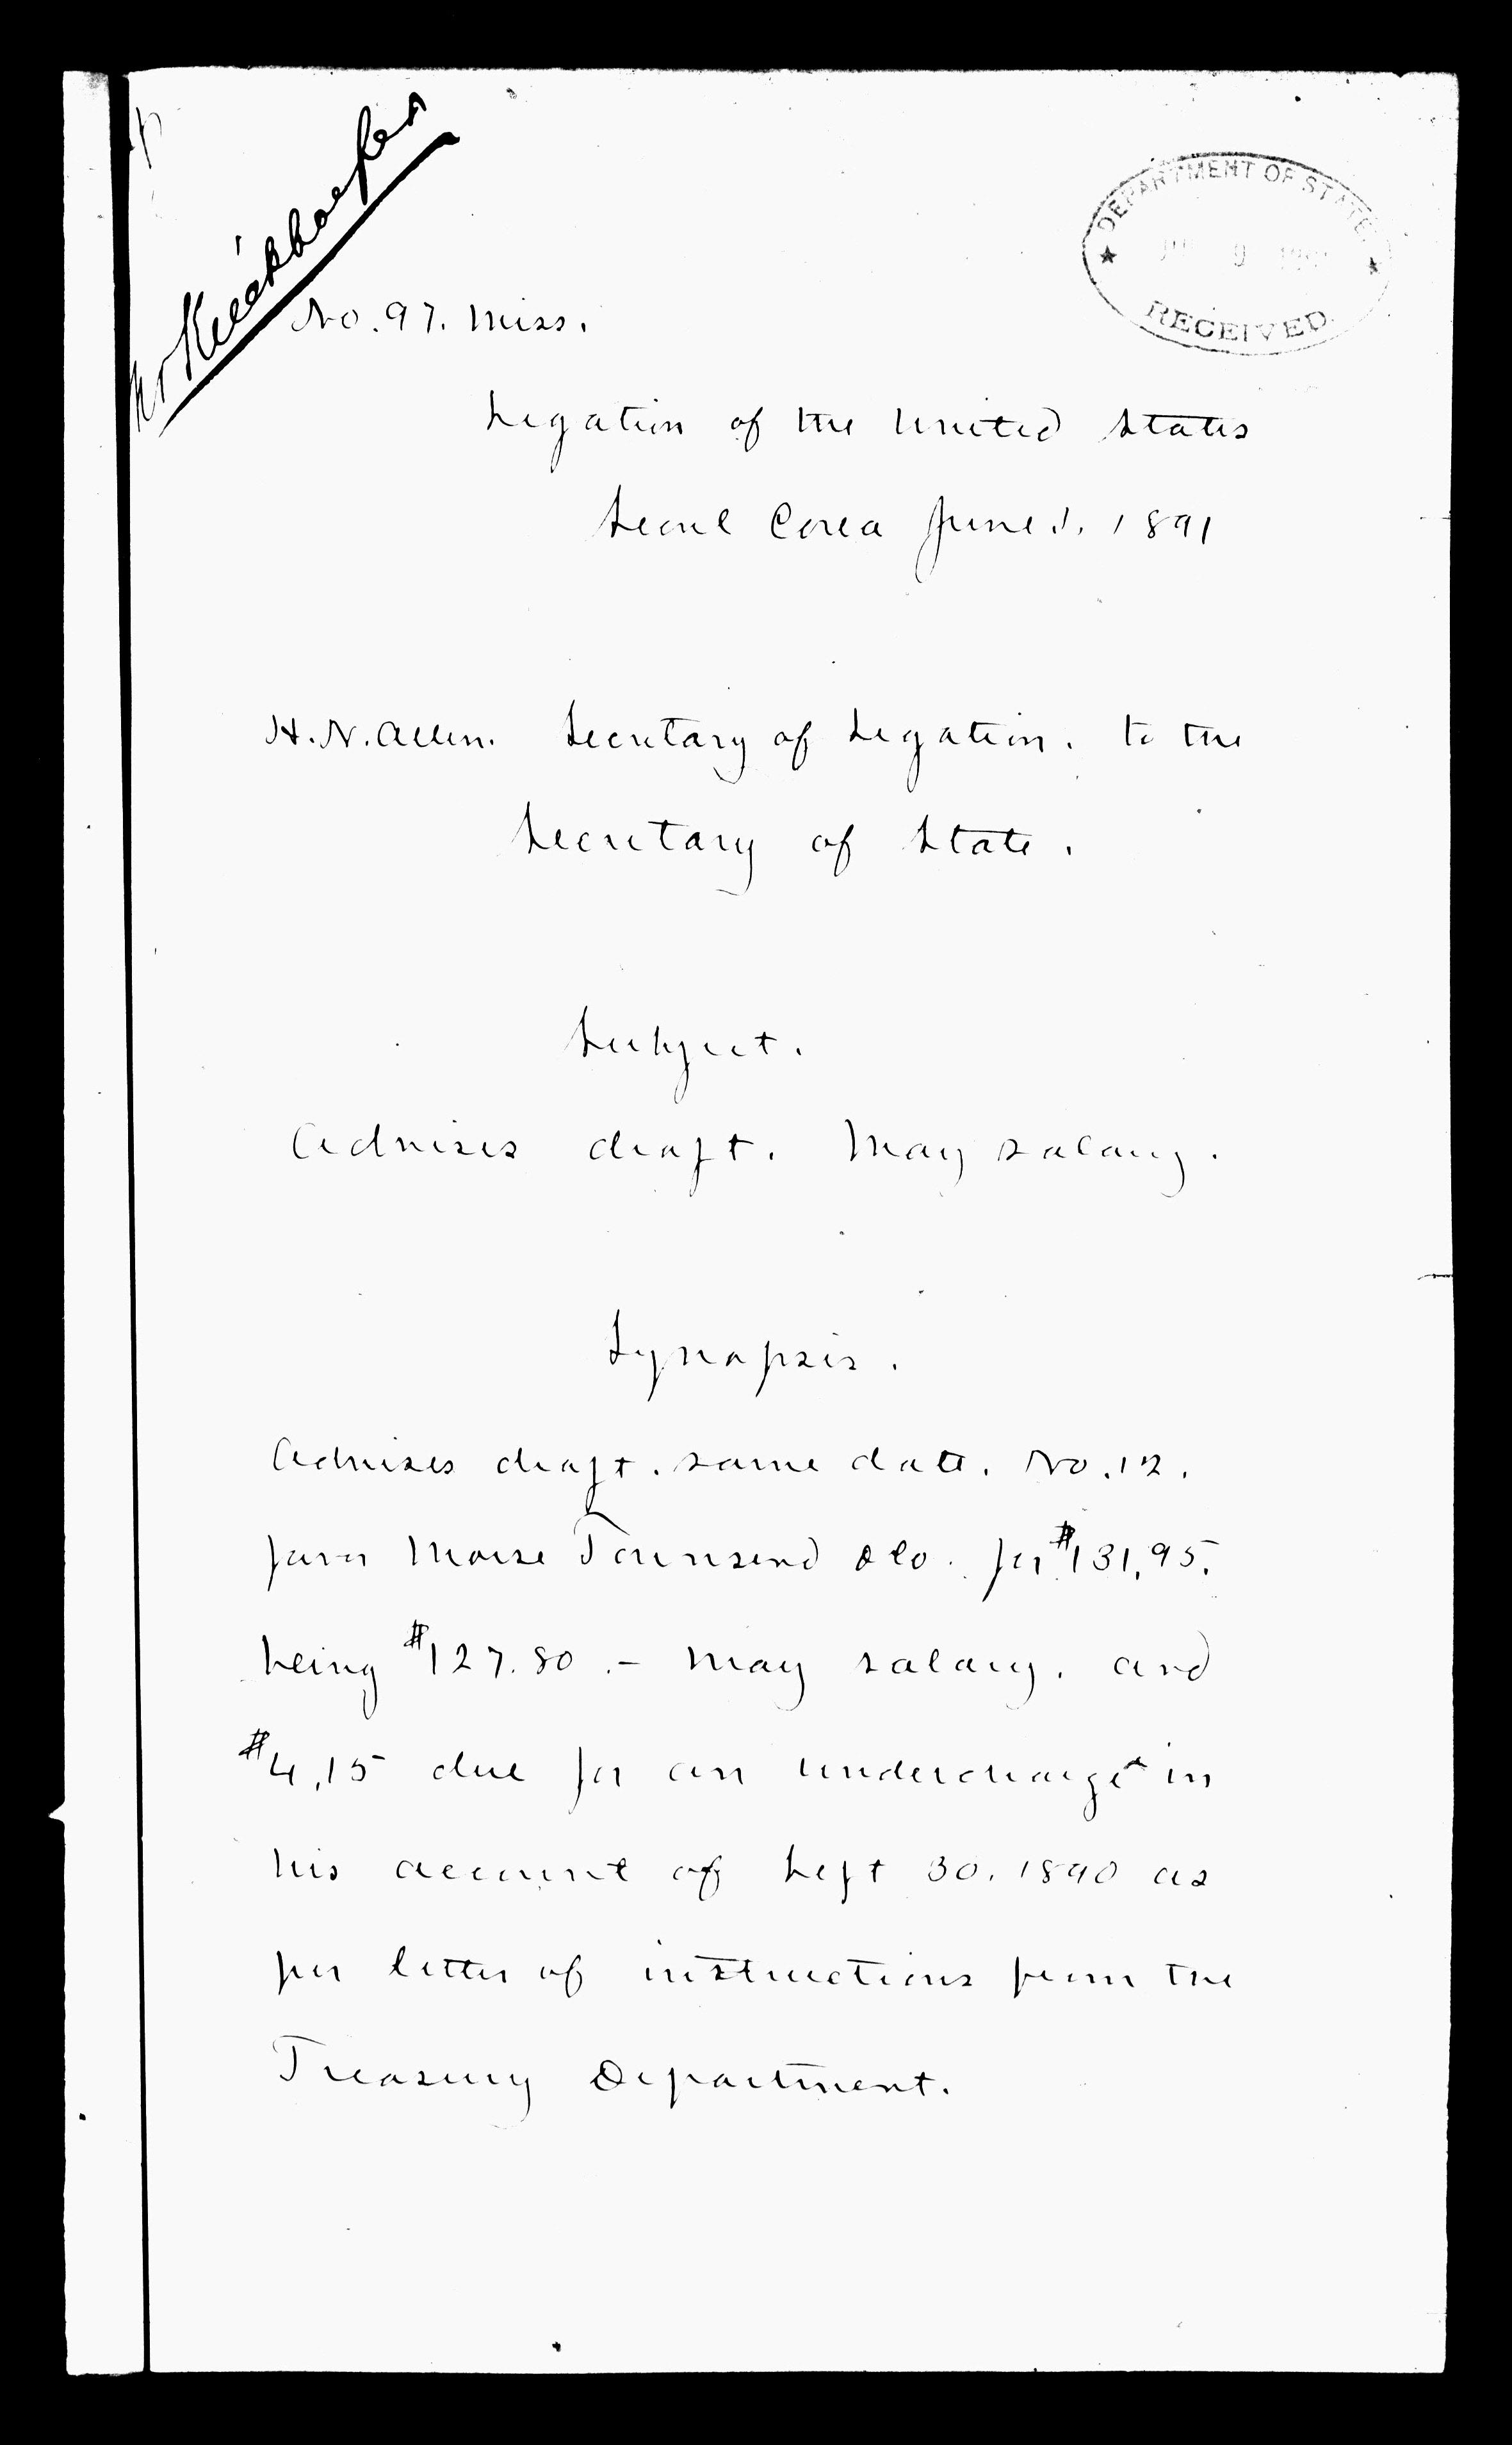 Mr Kieckhoefer
DEPARTMENT OF STATE
RECEIVED.
No. 97. Miss.
Legation of the United States
Seoul Corea June 1. 1891
H. N. Allen. Secretary of Legation. to the
Secretary of State.
Subject.
Advises draft. May salary.
Synopsis.
Advises draft. same date. No. 12.
favor Morse Townsend &Co. for $131.95.
being $127.80.- May salary. and
$4.15 due for an undercharge in
his account of Sept 30. 1890 as
per letter of instructions from the
Treasury Department.